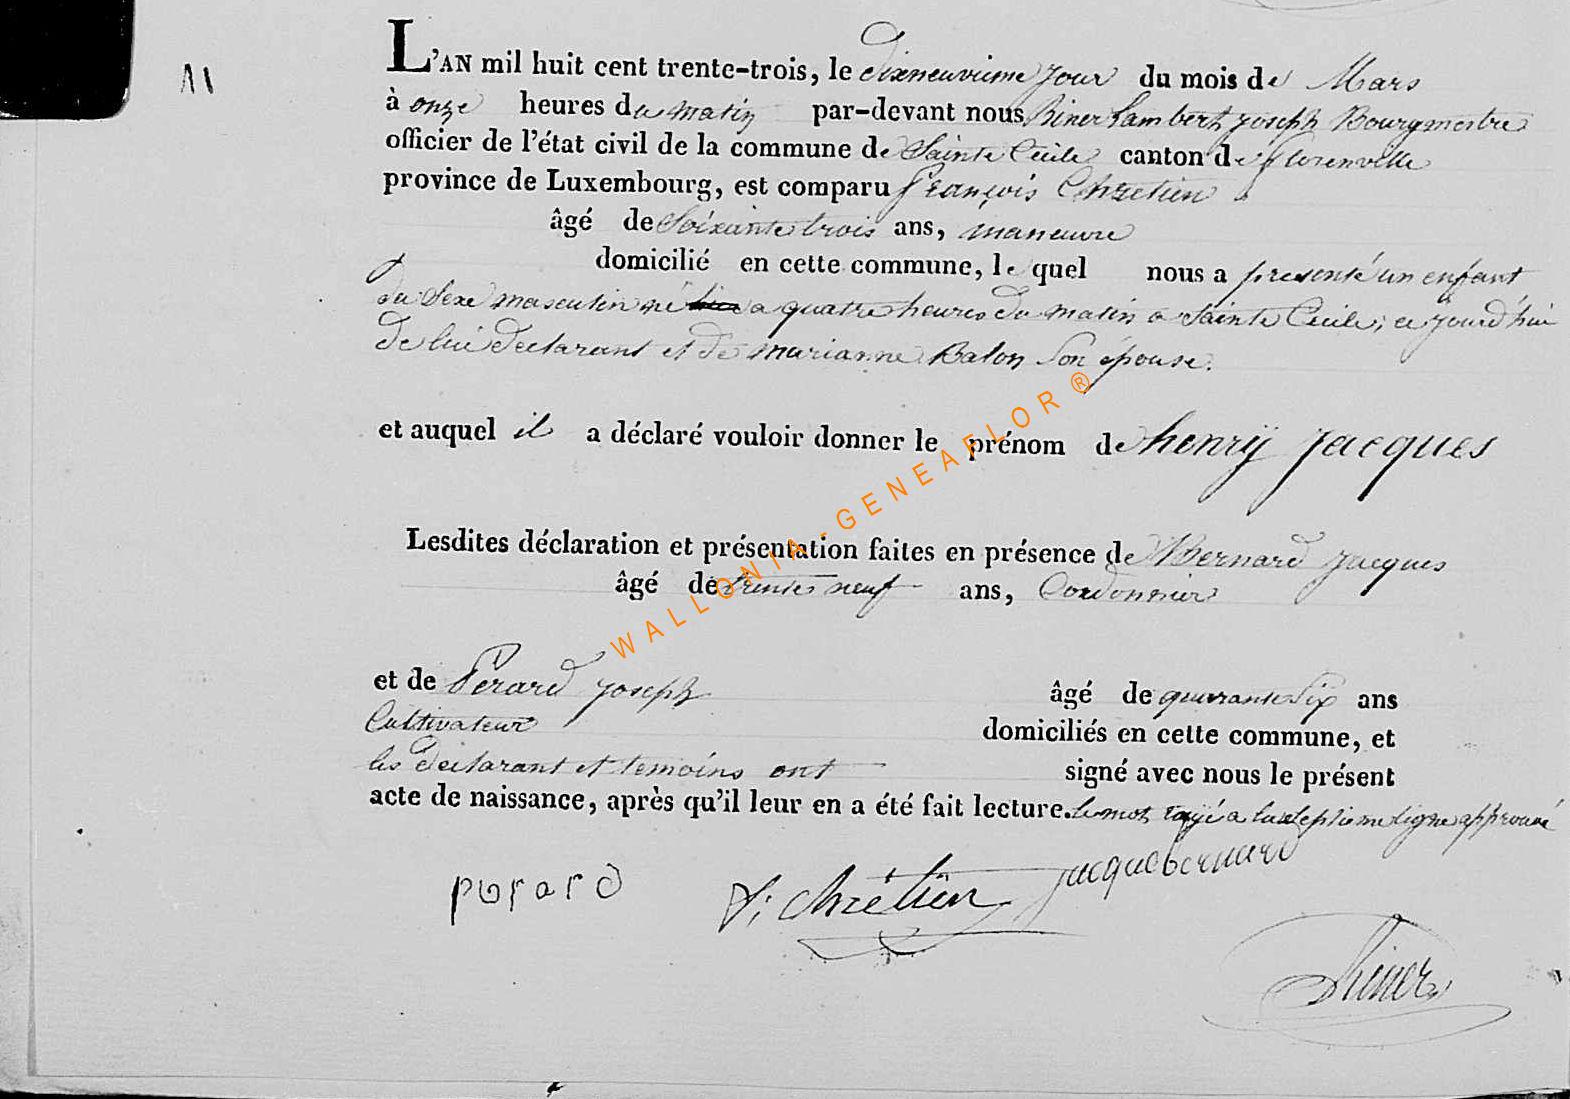 11
L'AN mil huit cent trente-trois, le dixneuvieme jour du mois de Mars
à onze heures du matin par-devant nous Riner Lambert joseph Bourgmestre
officier de l'état civil de la commune de Sainte Cécile canton de florenville
province de Luxembourg, est comparu françois Chretien
âgé de Soixante trois ans, manœuvre
domicilié en cette commune, le quel nous a presenté un enfant
du Sexe masculin né a quatre heures du matin a Sainte Cecile, ce jourd'hui
de lui declarant et de marianne Balon Son épouse.
et auquel il a déclaré vouloir donner le prénom de henrÿ jacques
Lesdites déclaration et présentation faites en présence de Bernard jacques
âgé de trente neuf ans, Cordonnier
et de Pérard joseph âgé de quarante Six ans
Cultivateur domiciliés en cette commune, et
les declarant et temoins ont signé avec nous le présent
acte de naissance, après qu'il leur en a été fait lecture. le mot rayé a la septieme ligne approuvé
perard f: chrétien jacque bernard
Riner
WALLONIA-GENEAFLOR®